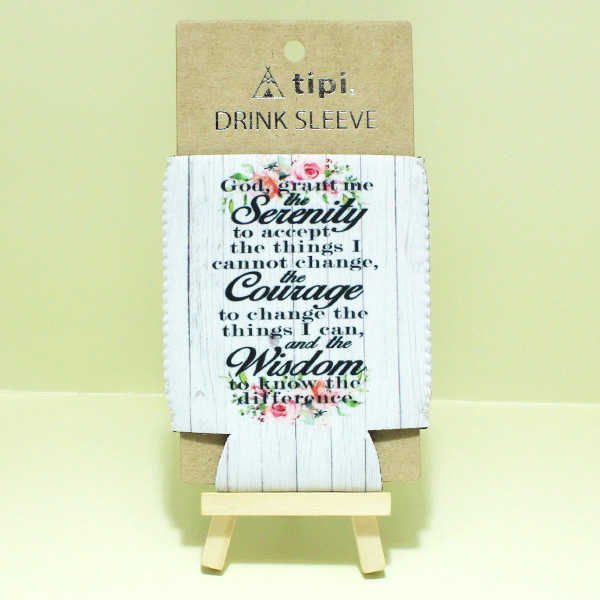 tipi.
DRINK SLEEVE
God, grant me
the
Serenity
to accept
the things I
cannot change,
the
Courage
to change the
things I can,
and the
Wisdom
to know the
difference.